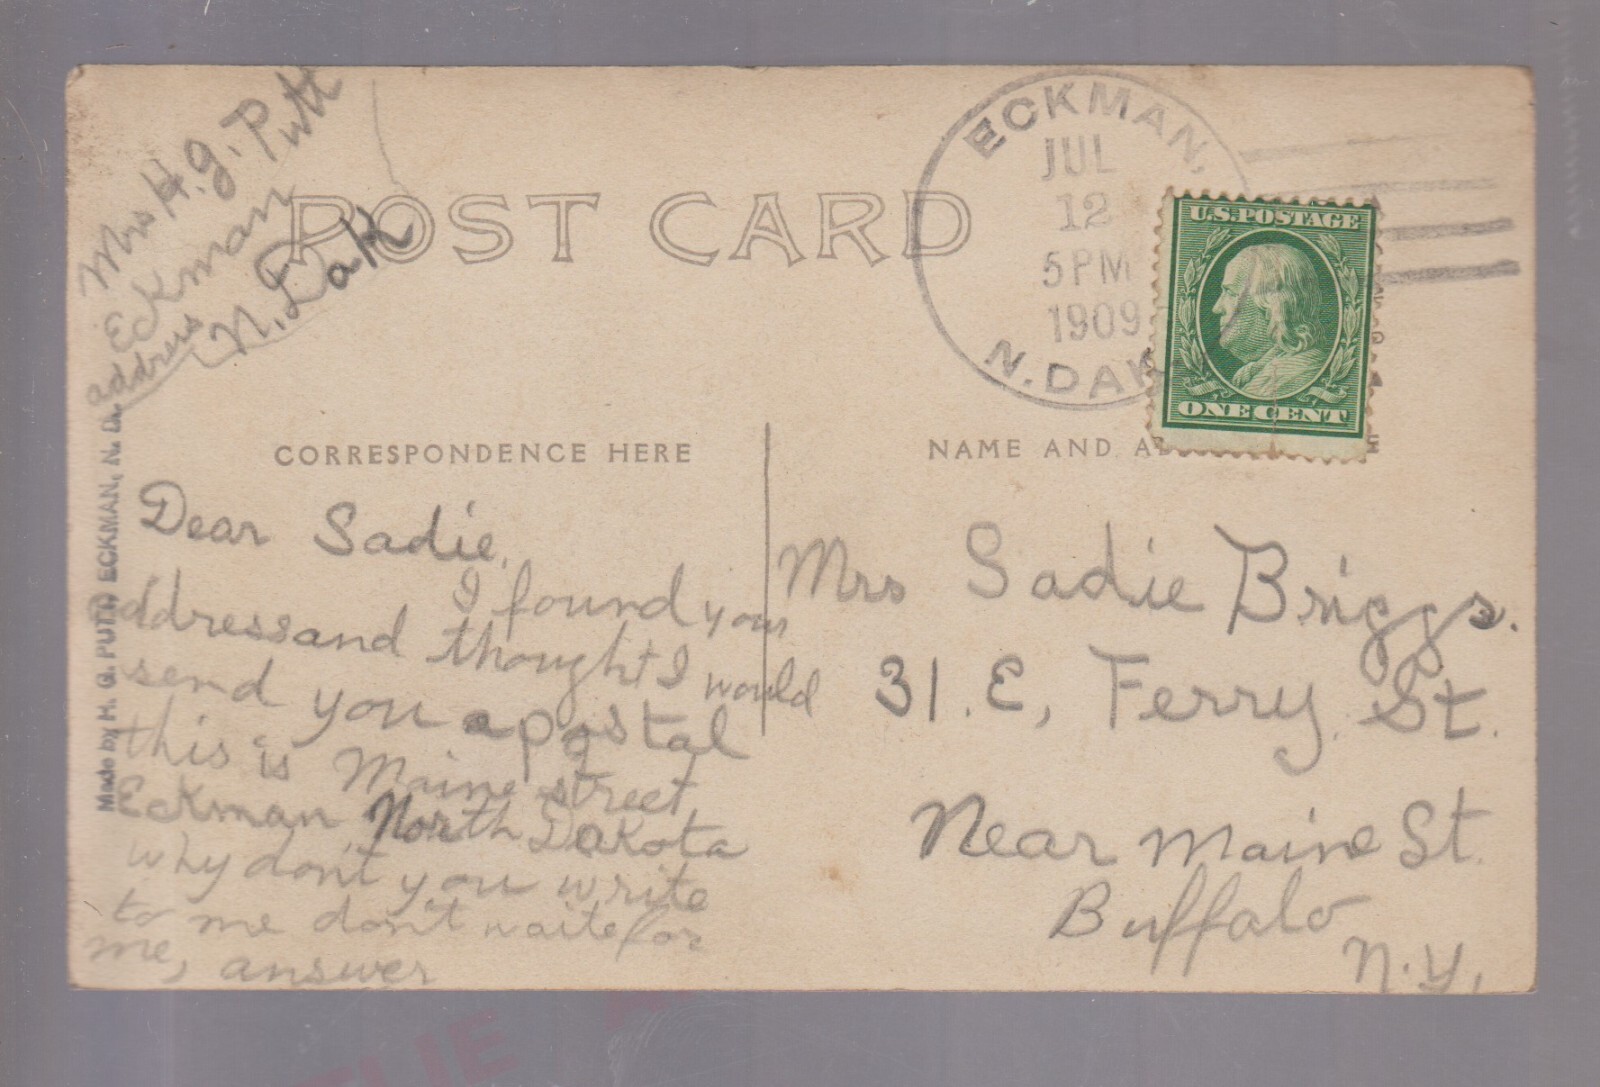 Mrs H.G. Putt
Eckman
address N. Dak
POST CARD
ECKMAN,
JUL
12
5 PM
1909
N. DAK
U.S. POSTAGE
ONE CENT
CORRESPONDENCE HERE
NAME AND AD
Made by H. G. PUTT, ECKMAN, N. D.
Dear Sadie.
I found your
address and thought I would
send you a postal
this is Maine street
Eckman North Dakota
why don't you write
to me don't waite for
me, answer
Mrs Sadie Briggs.
31. E, Ferry St.
Near Maine St.
Buffalo
N.Y,